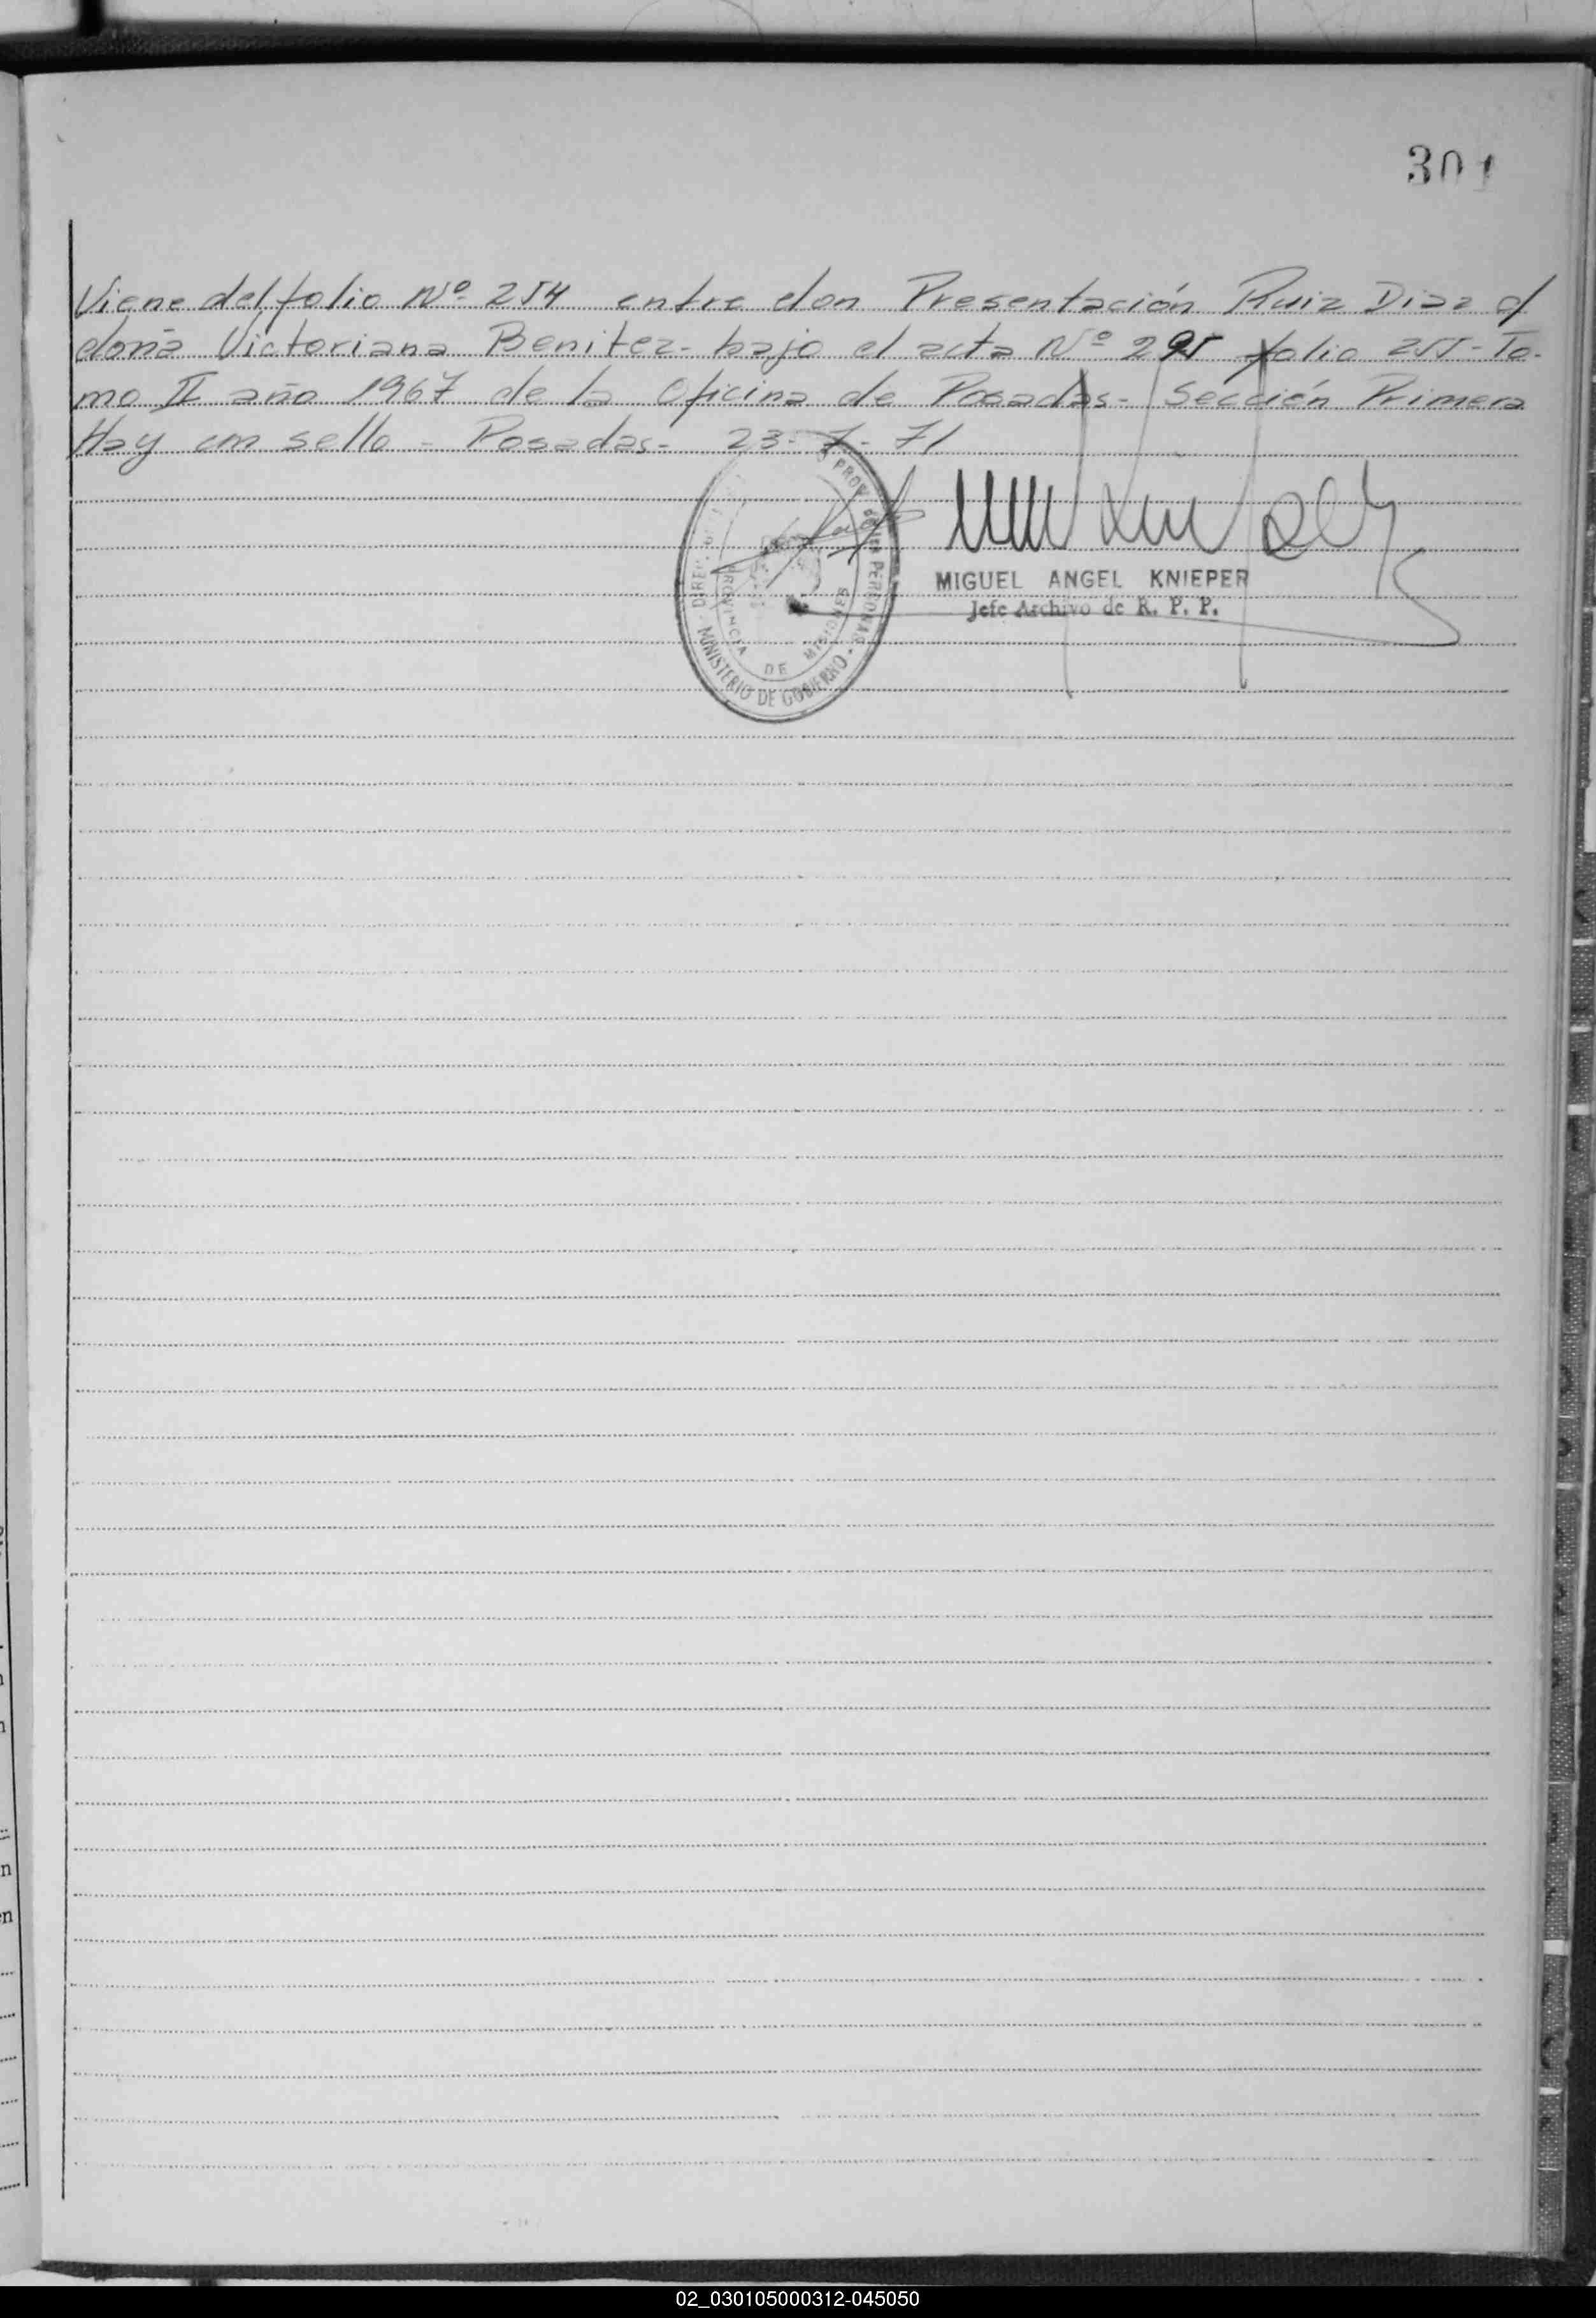 301
Viene del folio Nº 254 entre don Presentación Ruiz Diaz y
doña Victoriana Benitez- bajo el acta Nº 295 folio 255- To-
mo II año 1967 de la Oficina de Posadas- Sección Primera
Hay un sello - Posadas- 23-7-71
MIGUEL ANGEL KNIEPER
Jefe Archivo de R. P. P.
PROV. DE LAS PERSONAS
PROVINCIA DE MISIONES
MINISTERIO DE GOBIERNO
n
en
02_030105000312-045050